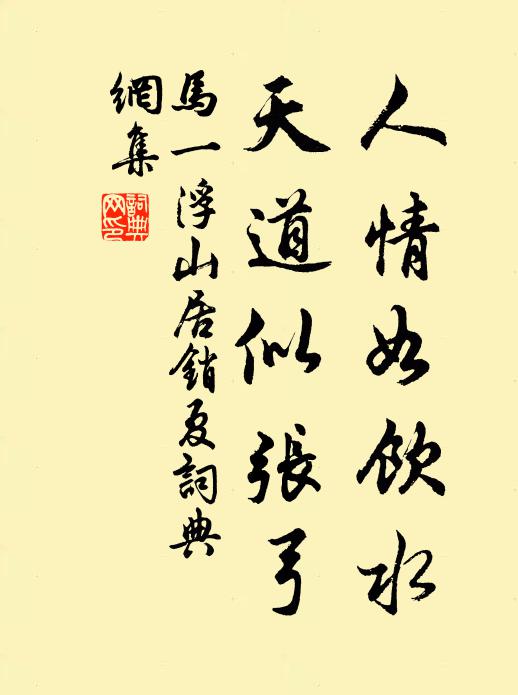 人情如飲水
天道似張弓
馬一浮山居銷夏詞典
網集
詞典
网印